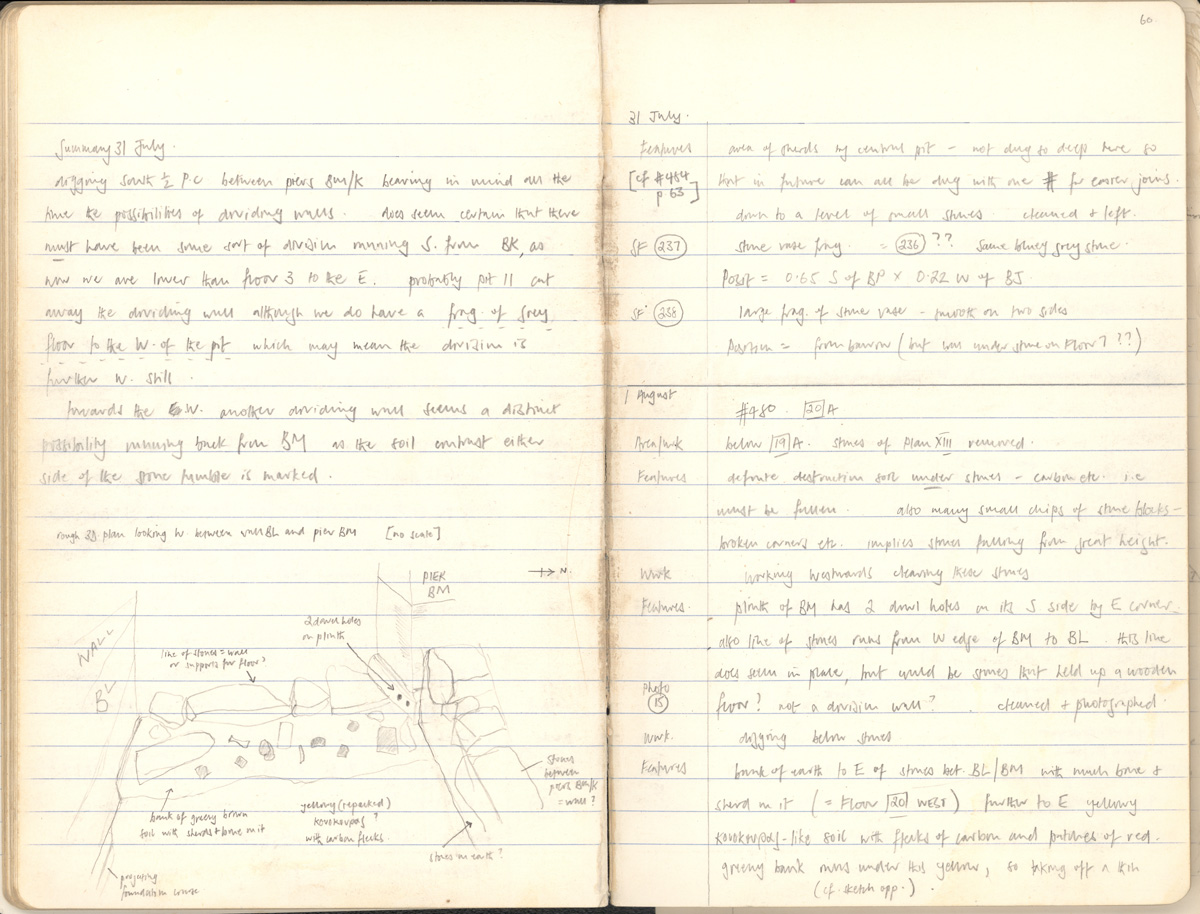 Summary 31 July.
digging south ½ PC between piers BM/K bearing in mind all the
time the possibilities of dividing walls. does seem certain that there
must have been some sort of division running S. from BK, as
now we are lower than floor 3 to the E. probably pit 11 cut
away the dividing wall although we do have a frag. of grey
floor to the W. of the pit which may mean the division is
further W. still.
towards the W. another dividing wall seems a distinct
possibility running back from BM as the soil contrast either
side of the stone tumble is marked.
rough 3D plan looking W. between wall BL and pier BM [no scale]
N.
PIER
BM
2 dowel holes
on plinth
line of stones = wall
or supports for floor?
WALL
BL
stones
between
piers BM/K
= wall?
bank of greeny brown
soil with sherds + bone in it
yellowy (repacked)
κουσκουρας?
with carbon flecks.
stones on earth?
projecting
foundation course
60
31 July.
Features area of sherds by central pit - not dug so deep here so
[cf #484 that in future can all be dug with one # for easier joins.
p 63] down to a level of small stones. cleaned & left.
SF 237 stone vase frag. = 236 ?? same bluey grey stone.
Posit = 0.65 S of BP x 0.22 W of BJ.
SF 238 large frag. of stone vase - smooth on two sides
Position = from barrow (but was under stone on Floor 7 ??)
1 August #480. 20 A
Area/wk below 19 A. stones of Plan XIII removed.
Features definite destruction soil under stones - carbon etc. i.e
must be fallen. also many small chips of stone blocks -
broken corners etc. implies stones falling from great height.
Work working westwards clearing these stones
Features. plinth of BM has 2 dowl holes on its S side by E corner
also line of stones runs from W edge of BM to BL. this line
does seem in place, but could be stones that held up a wooden
Photo
15 floor? not a division wall? cleaned + photographed.
Work. digging below stones
Features bank of earth to E of stones bet. BL/BM with much bone &
sherd in it (= Floor 20 WEST) further to E yellowy
κουσκουρας-like soil with flecks of carbon and patches of red.
greeny bank runs under this yellow, so taking off a thin
(cf. sketch opp.).